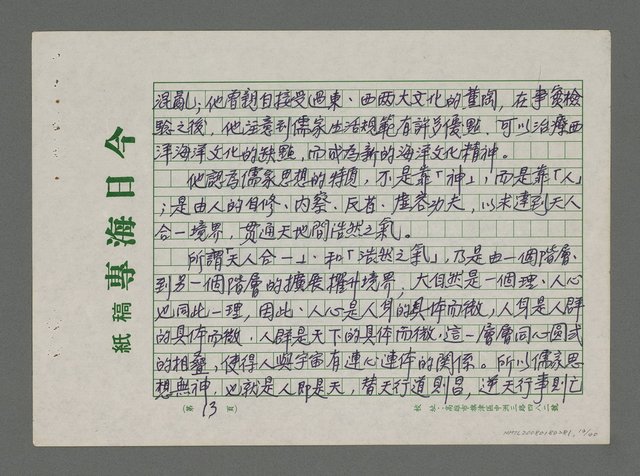 混亂；他曾親自接受過東、西兩大文化的薰陶，在事實檢
驗之後，他注意到儒家生活規範有許多優點，可以治療西
洋海洋文化的缺點，而成為新的海洋文化精神。
他認為儒家思想的特質，不是靠「神」，而是靠「人」
；是由人的自修、內察、反省、虛容功夫，以來達到天人
合一境界，貫通天地間浩然之氣。
所謂「天人合一」、和「浩然之氣」，乃是由一個階層、
到另一個階層的擴展擢升境界，大自然是一個理、人心
也同此一理，因此、人心是人身的具体而微，人身是人群
的具体而微、人群是天下的具体而微，這一層層同心圓式
的相疊，使得人與宇宙有連心連体的關係。所以儒家思
想無神，也就是人即是天，替天行道則昌，逆天行事則亡
今日海專
稿紙
(第 13 頁)
校址：高雄市旗津區中洲三路四八二號
NMTL20080180281, 14/40